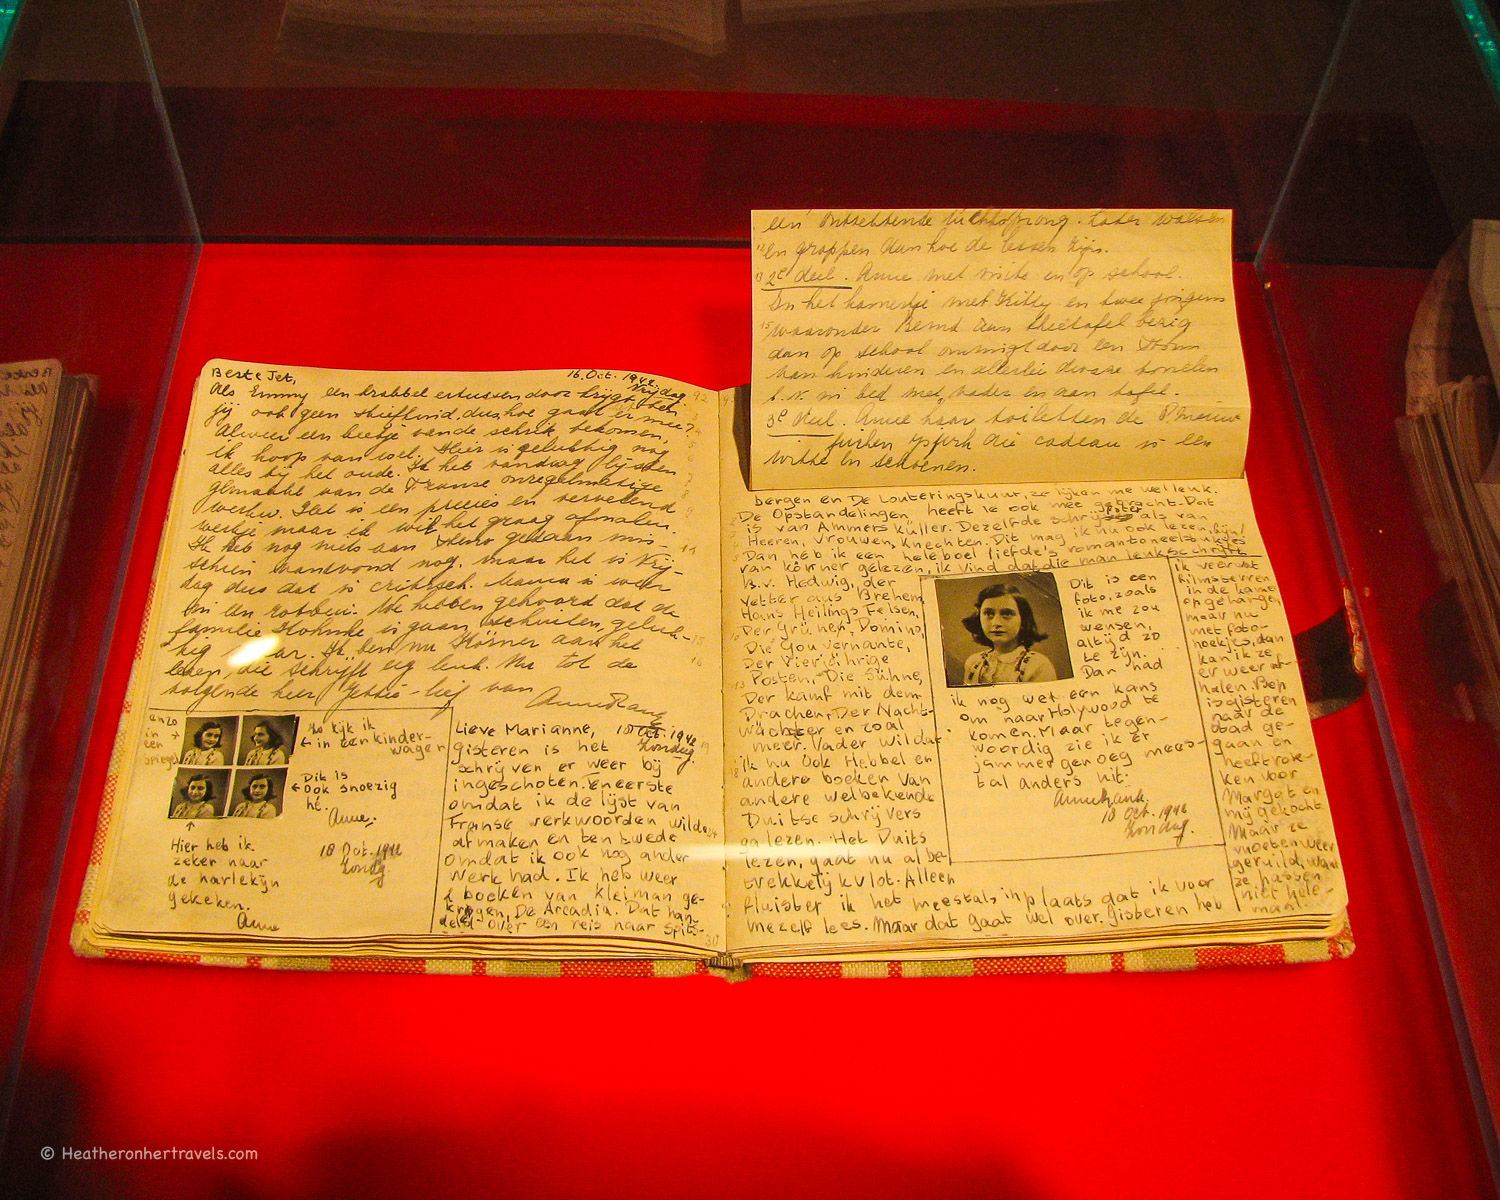 Beste Jet,
16. Oct. 1942.
Vrijdag
Als Emmy een krabbel ertussendoor krijgt ben
jij ook geen stiefkind, dus hoe gaat er mee?
Alweer een beetje van de schrik bekomen,
ik hoop van wel. Hier is gelukkig nog
alles bij het oude. Ik heb vandaag lijsten
gemaakt van de Franse onregelmatige
werkw. Het is een precies en vervelend
werkje maar ik wil het graag afmaken.
Ik heb nog niets aan Steno gedaan mis-
schien vanavond nog, maar het is Vrij-
dag dus dat is critisch. Mama is weer
We hebben gehoord dat de
familie is gaan
Ik ben nu Körner aan het
lezen, die schrijft erg leuk. Nu tot de
volgende keer Jettie-lief van
Anne Frank
enzo
in
een
spiegel
Zo kijk ik
in een kinder-
wagen
Dit is
ook snoezig
hè.
Anne.
18 Oct. 1942
Zondag.
Hier heb ik
zeker naar
de harlekijn
gekeken.
Anne
Lieve Marianne,
18 Oct. 1942
Zondag.
gisteren is het
schrijven er weer bij
ingeschoten. Ten eerste
omdat ik de lijst van
Franse werkwoorden wilde
afmaken en ten tweede
omdat ik ook nog ander
werk had. Ik heb weer
2 boeken van kleiman ge-
kregen, De Arcadia. Dat han-
delt over een reis naar Spits-
30
een ontzettende luchtsprong. Later
en grappen aan hoe de lessen zijn.
2e deel. Anne met visite en op school.
In het kamertje met Kitty en twee jongens
waaronder Bernd aan theetafel bezig
dan op school omringd door een
van kinderen en allerlei dwaze
b.v. in bed met vader en aan tafel.
3e deel. Anne haar toiletten de
die cadeau is een
witte en schoenen.
bergen en De Louteringskuur, ze lijken me wel leuk.
De Opstandelingen, heeft ie ook mee gebracht. Dat
is van Ammers küller. Dezelfde schrijfster als van
Heeren, Vrouwen, Knechten. Dit mag ik nu ook lezen, fijn!
Dan heb ik een heleboel liefde's romantoneelstukjes
van körner gelezen, ik vind dat die man leuk schrijft
B.v. Hedwig, der
Vetter aus Bremen
Hans Heilings Felsen,
Der Grüne Domino,
Die Gouvernante,
Der Vierjährige
Posten, Die Sühne,
Der kamf mit dem
Drachen, Der Nacht-
wächter en zoal
meer. Vader wil dat
ik nu ook Hebbel en
andere boeken van
andere welbekende
Duitse schrijvers
ga lezen. Het Duits
lezen, gaat nu al be-
trekkelijk vlot. Alleen
fluister ik het meestal inplaats dat ik voor
mezelf lees. Maar dat gaat wel over. Gisteren heb
Dit is een
foto, zoals
ik me zou
wensen,
altijd zo
te zijn.
Dan had
ik nog wel een kans
om naar Holywood te
komen. Maar tegen-
woordig zie ik er
jammer genoeg mees-
tal anders uit.
Anne Frank.
18 Oct. 1942
Zondag.
ik weer wat
filmsterren
in de kamer
opgehangen
maar nu
met foto-
hoekjes, dan
kan ik ze
er weer af-
halen. Bep
is gisteren
naar de
stad ge-
gaan en
heeft rok-
ken voor
Margot en
mij gekocht
Maar ze
moeten weer
geruild, want
ze passen
niet hele-
maal.
© Heatheronhertravels.com